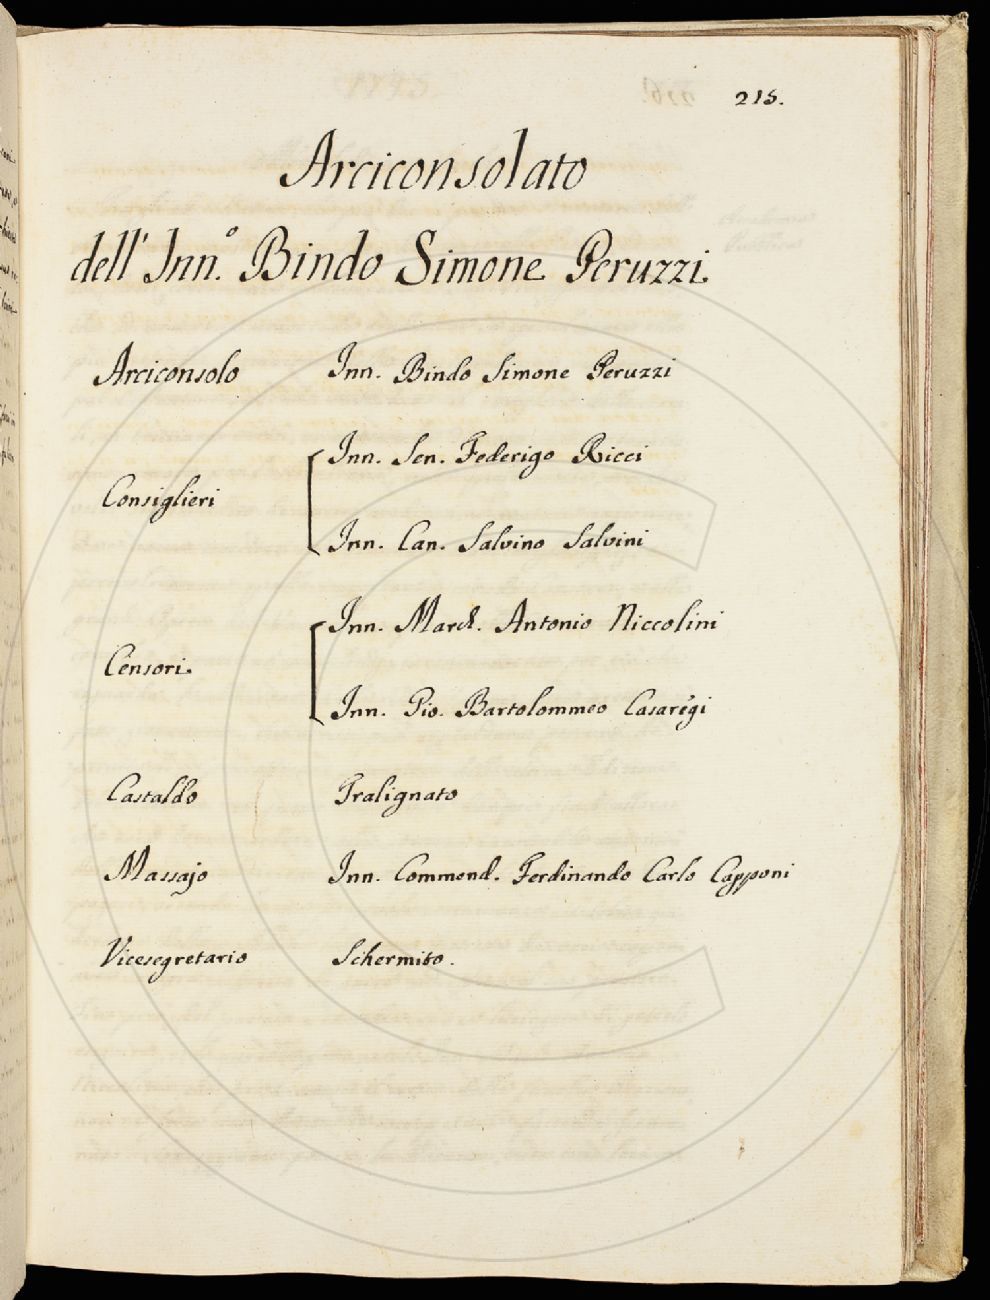 215.
Arciconsolato
dell' Inn.º Bindo Simone Peruzzi.
Arciconsolo Inn. Bindo Simone Peruzzi
Inn. Sen. Federigo Ricci
Consiglieri
Inn. Can. Salvino Salvini
Inn. March. Antonio Niccolini
Censori.
Inn. Gio. Bartolommeo Casarégi
Castaldo Tralignato
Massajo Inn. Commend. Ferdinando Carlo Capponi
Vicesegretario Schermito.